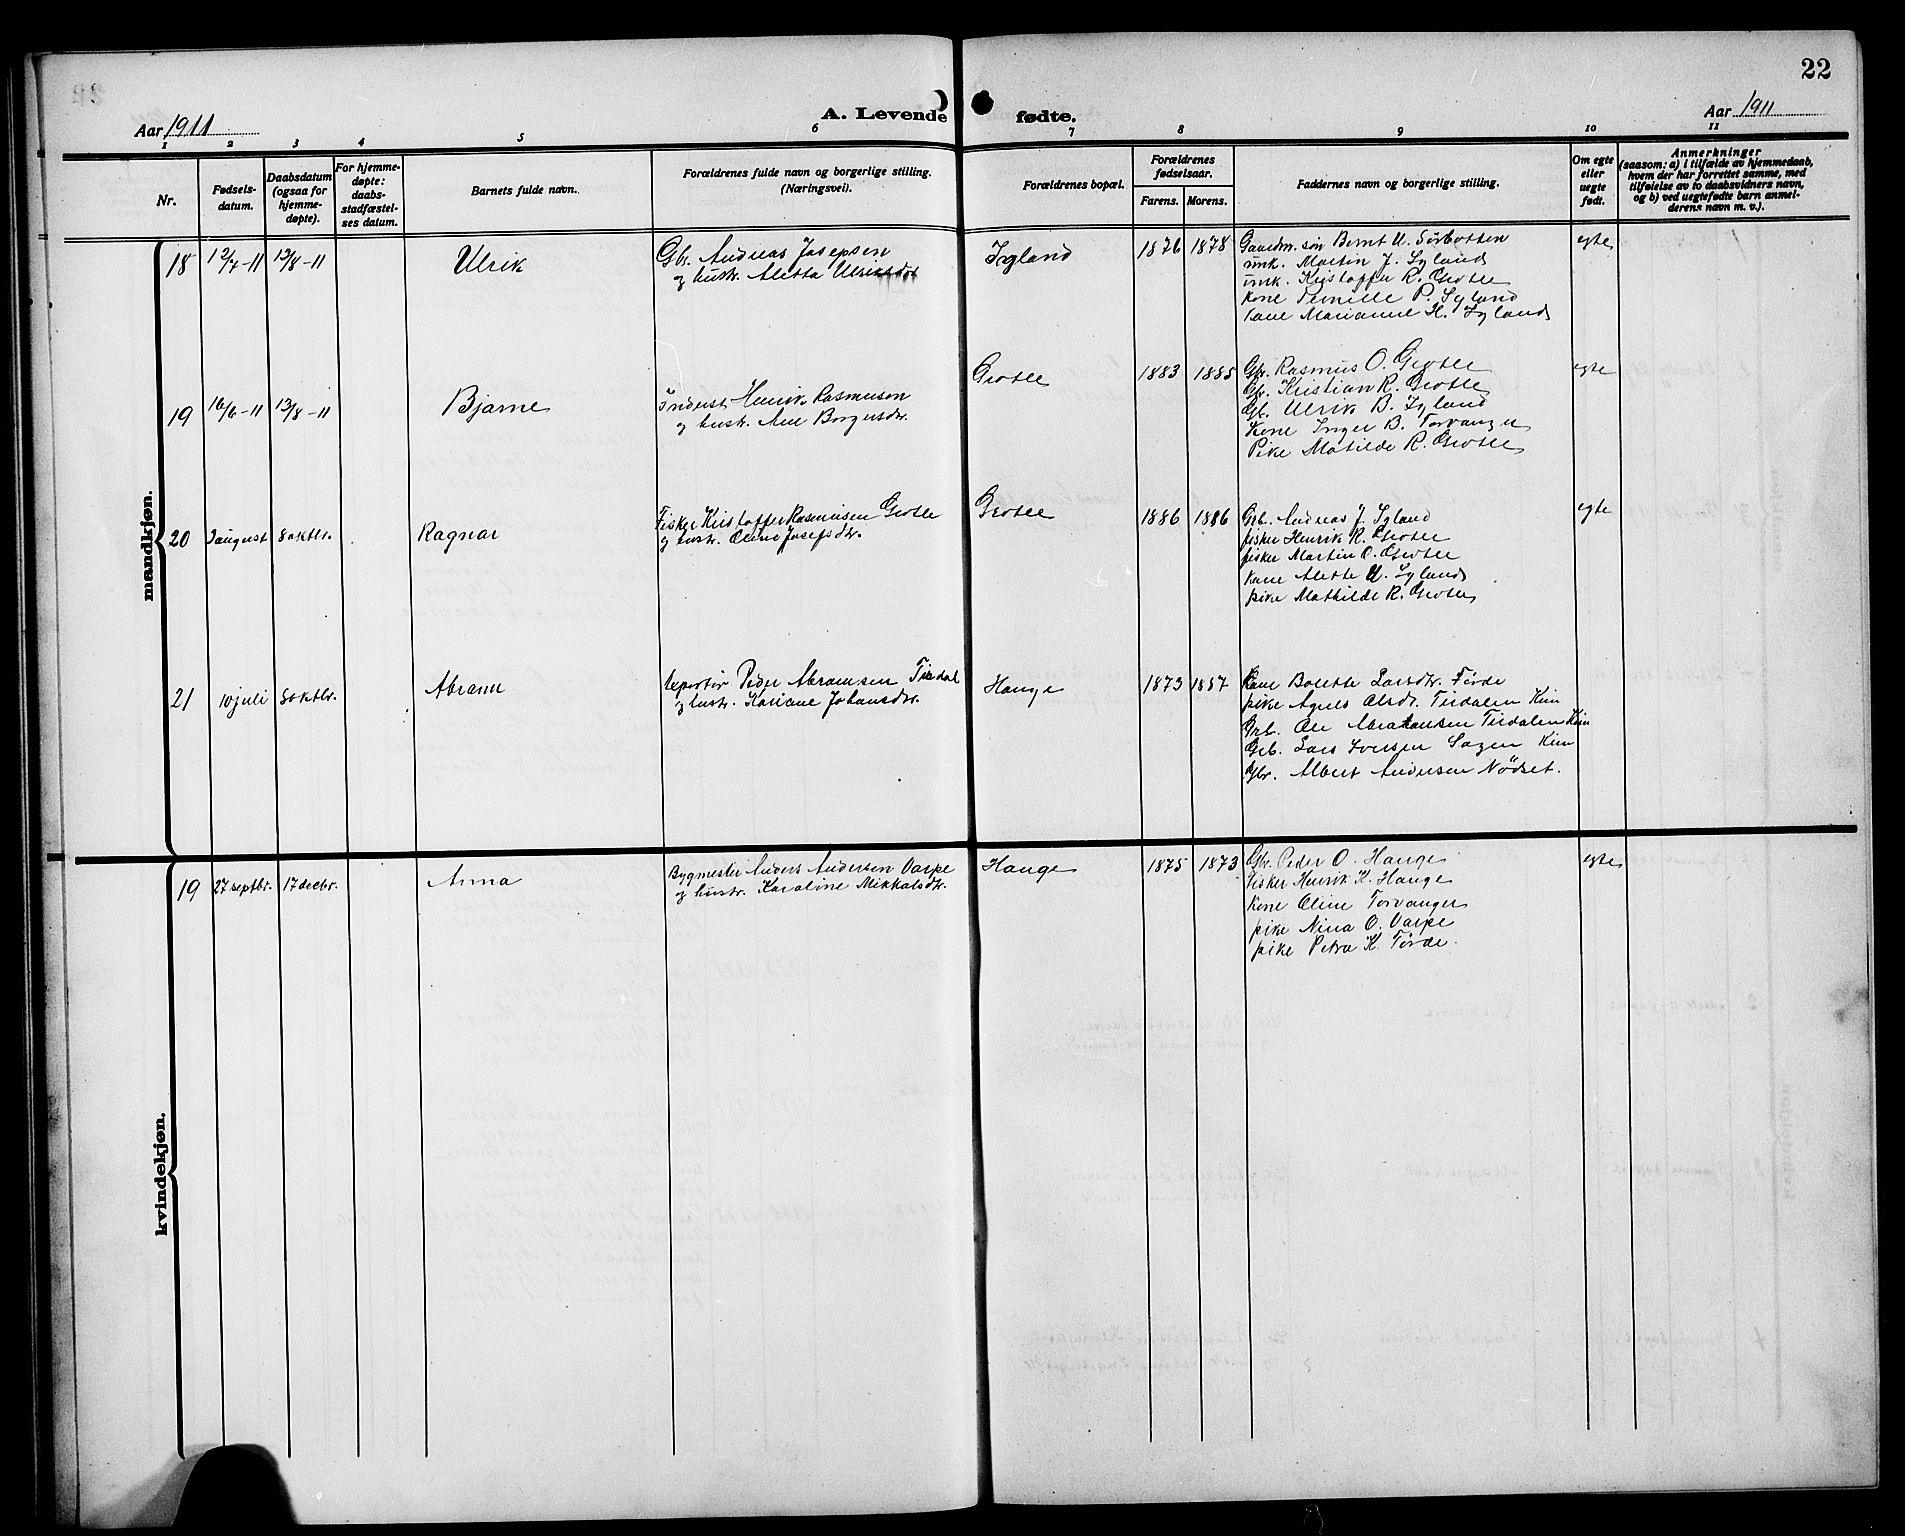 22
Aar 1911
A. Levende fødte.
Aar 1911
1 2 3 4 5 6 7 8 9 10 11
Nr.
Fødsels-
datum.
Daabsdatum
(ogsaa for
hjemme-
døpte).
For hjemme-
døpte:
daabs-
stadfæstel-
ses datum.
Barnets fulde navn.
Forældrenes fulde navn og borgerlige stilling.
(Næringsvei).
Forældrenes bopæl.
Forældrenes
fødselsaar.
Farens. Morens.
Faddernes navn og borgerlige stilling.
Om egte
eller
uegte
født.
Anmerkninger
(saasom: a) i tilfælde av hjemmedaab,
hvem der har forrettet samme, med
tilføielse av to daabsvidners navn,
og b) ved uegtefødte barn anmel-
derens navn m. v.).
mandkjøn.
18 12/7-11 13/8-11 Ulrik
Gbr. Andreas Josepsen
og hustr. Aletta Ulriksdot
Igland 1876 1878
Gaardm. søn Bernt U. Sørbotten
unk. Martin J. Igland
unk. Kristoffer R. Grotle
kone Pernille P. Igland
kone Marianne H. Igland
egte
19 16/6-11 13/8-11 Bjarne
Inderst Henrik Rasmusen
og hustr. Ane Borgersdtr.
Grotle 1883 1885
Gbr. Rasmus O. Grotle
Gbr. Kristian R. Grotle
Gb. Ulrik B. Igland
Kone Inger B. Torvanger
Pike Matilde R. Grotle
egte
20 3 august 8 oktbr. Ragnar
Fisker Kristoffer Rasmusen Grotle
og hustr. Oline Josefsdtr.
Grotle 1886 1886
Grb. Andreas J. Igland
fisker Henrik R. Grotle
fisker Martin O. Grotle
kone Alette U. Igland
pike Mathilde R. Grotle
egte
21 10 juli 8 oktbr. Abram
Peder Abramsen
og hustr. Kariane Johansdtr.
Hauge 1873 1887
Kone Bolette Larsdtr. Førde
pike Agnes Olsdtr. Tiidalen Kinn
Grb. Ole Abrahamsen Tiidalen Kinn
Grb. Lars Iversen Sagen Kinn
Gbr. Albert Andersen Nødset.
kvindekjøn.
19 27 septbr. 17 decbr. Anna
Bygmester Anders Andersen Varpe
og hustr. Karoline Mikkalsdtr.
Hauge 1875 1873
Gbr. Peder O. Hauge
fisker Henrik K. Hauge
Kone Oline Torvanger
pike Nina O. Varpe
pike Petra K. Førde.
egte